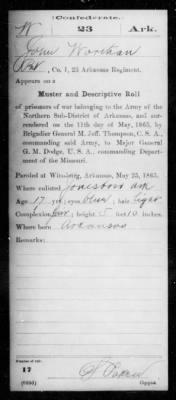 Confederate.
W 23 Ark.
John Worthan
Pvt, Co. I, 23 Arkansas Regiment.
Appears on a
Muster and Descriptive Roll
of prisoners of war belonging to the Army of the
Northern Sub-District of Arkansas, and sur-
rendered on the 11th day of May, 1865, by
Brigadier General M. Jeff. Thompson, C. S. A.,
commanding said Army, to Major General
G. M. Dodge, U. S. A., commanding Depart-
ment of the Missouri.
Paroled at Wittsburg, Arkansas, May 25, 1865.
Where enlisted Jonesboro Ark
Age 17 yrs; eyes blue; hair light
Complexion fair; height 5 feet 10 inches.
Where born Arkansas
Remarks:
Number of roll:
17
Copyist.